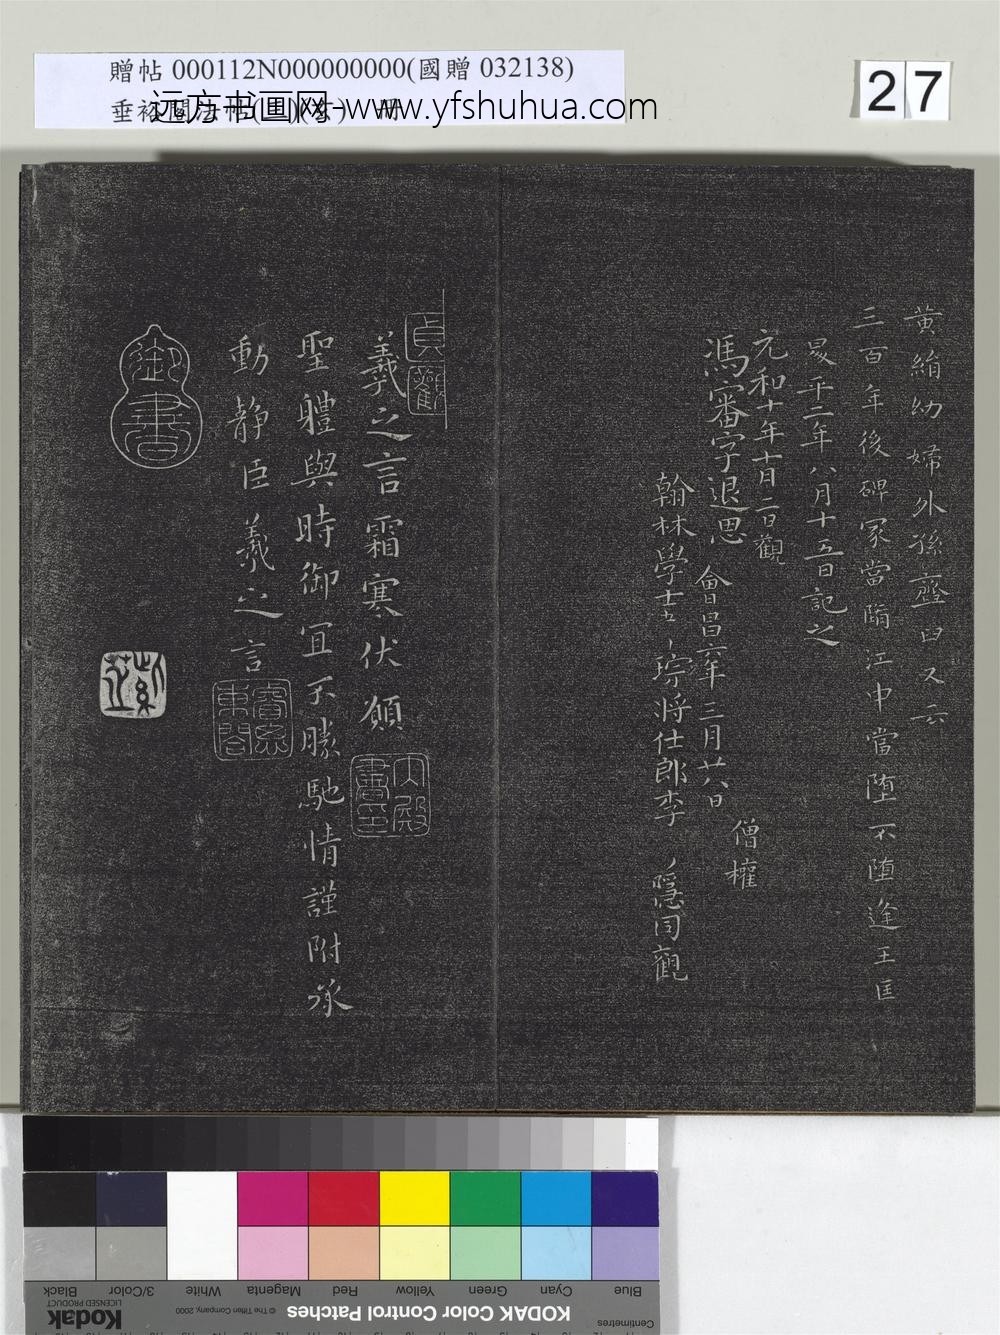 贈帖 000112N000000000(國贈 032138)
远方书画网 www.yfshuhua.com
27
黃絹幼婦外孫齏臼又云
三百年後碑冢當隋江中當墮不墮逢王匡
昇平二年八月十五日記之
元和十年十月二日觀
僧權
馮審字退思
會昌六年三月廿八日
翰林學士
琮將仕郎李
隱同觀
貞觀
羲之言霜寒伏願
內殿書印
聖體與時御宜不勝馳情謹附承
動靜臣羲之言
睿思東閣
御書
KODAK Color Control Patches
© The Tiffen Company, 2000
Kodak
LICENSED PRODUCT
Centimetres
Blue Cyan Green Yellow Red Magenta White 3/Color Black